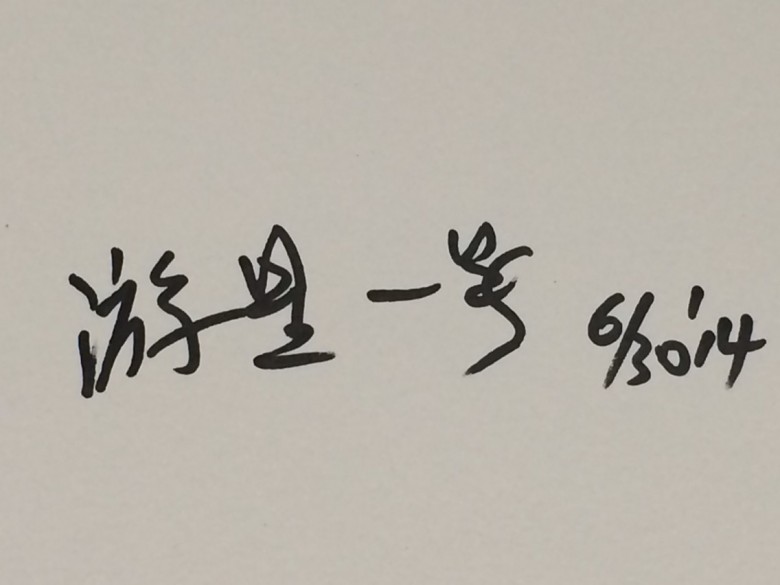 游里一号 6/30'14